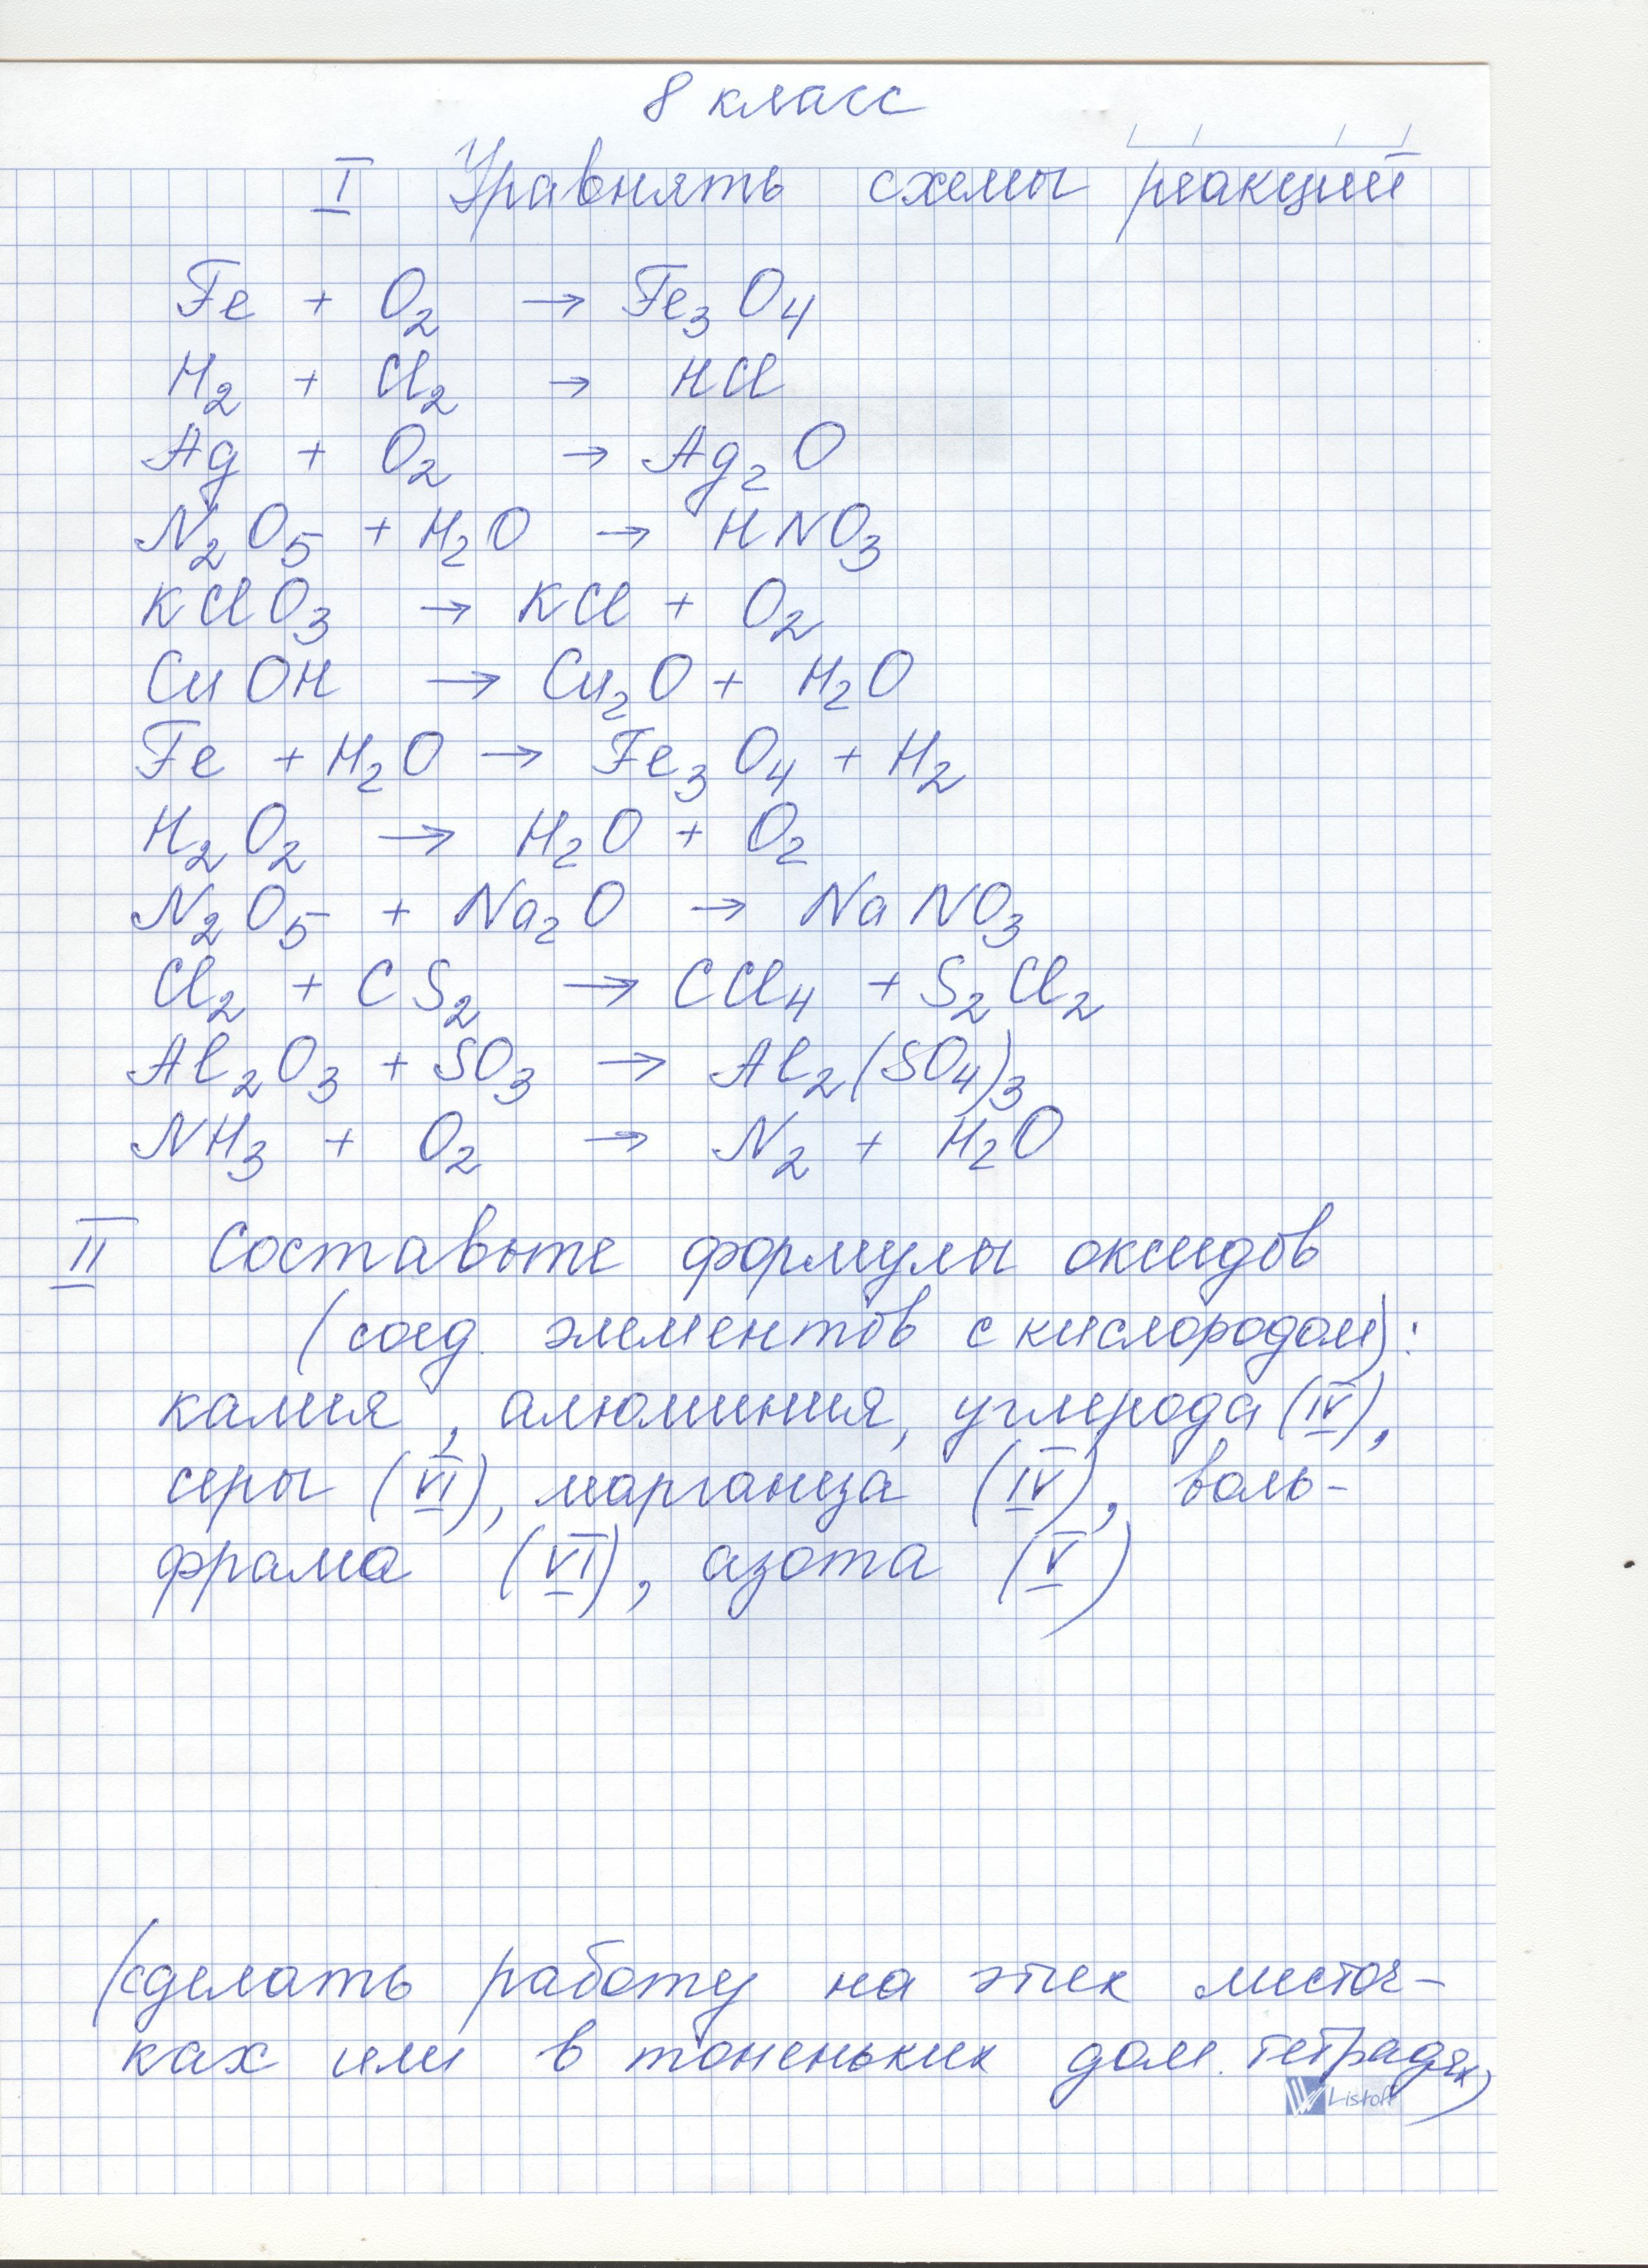 8 класс
I Уравнять схемы реакций
Fe + O₂ → Fe₃O₄
H₂ + Cl₂ → HCl
Ag + O₂ → Ag₂O
N₂O₅ + H₂O → HNO₃
KClO₃ → KCl + O₂
CuOH → Cu₂O + H₂O
Fe + H₂O → Fe₃O₄ + H₂
H₂O₂ → H₂O + O₂
N₂O₅ + Na₂O → NaNO₃
Cl₂ + CS₂ → CCl₄ + S₂Cl₂
Al₂O₃ + SO₃ → Al₂(SO₄)₃
NH₃ + O₂ → N₂ + H₂O
II Составьте формулы оксидов
(соед. элементов с кислородом):
калия, алюминия, углерода (IV),
серы (VI), марганца (IV), воль-
фрама (VI), азота (V)
(сделать работу на этих листоч-
ках или в тоненьких дом. тетрадях)
Listoff